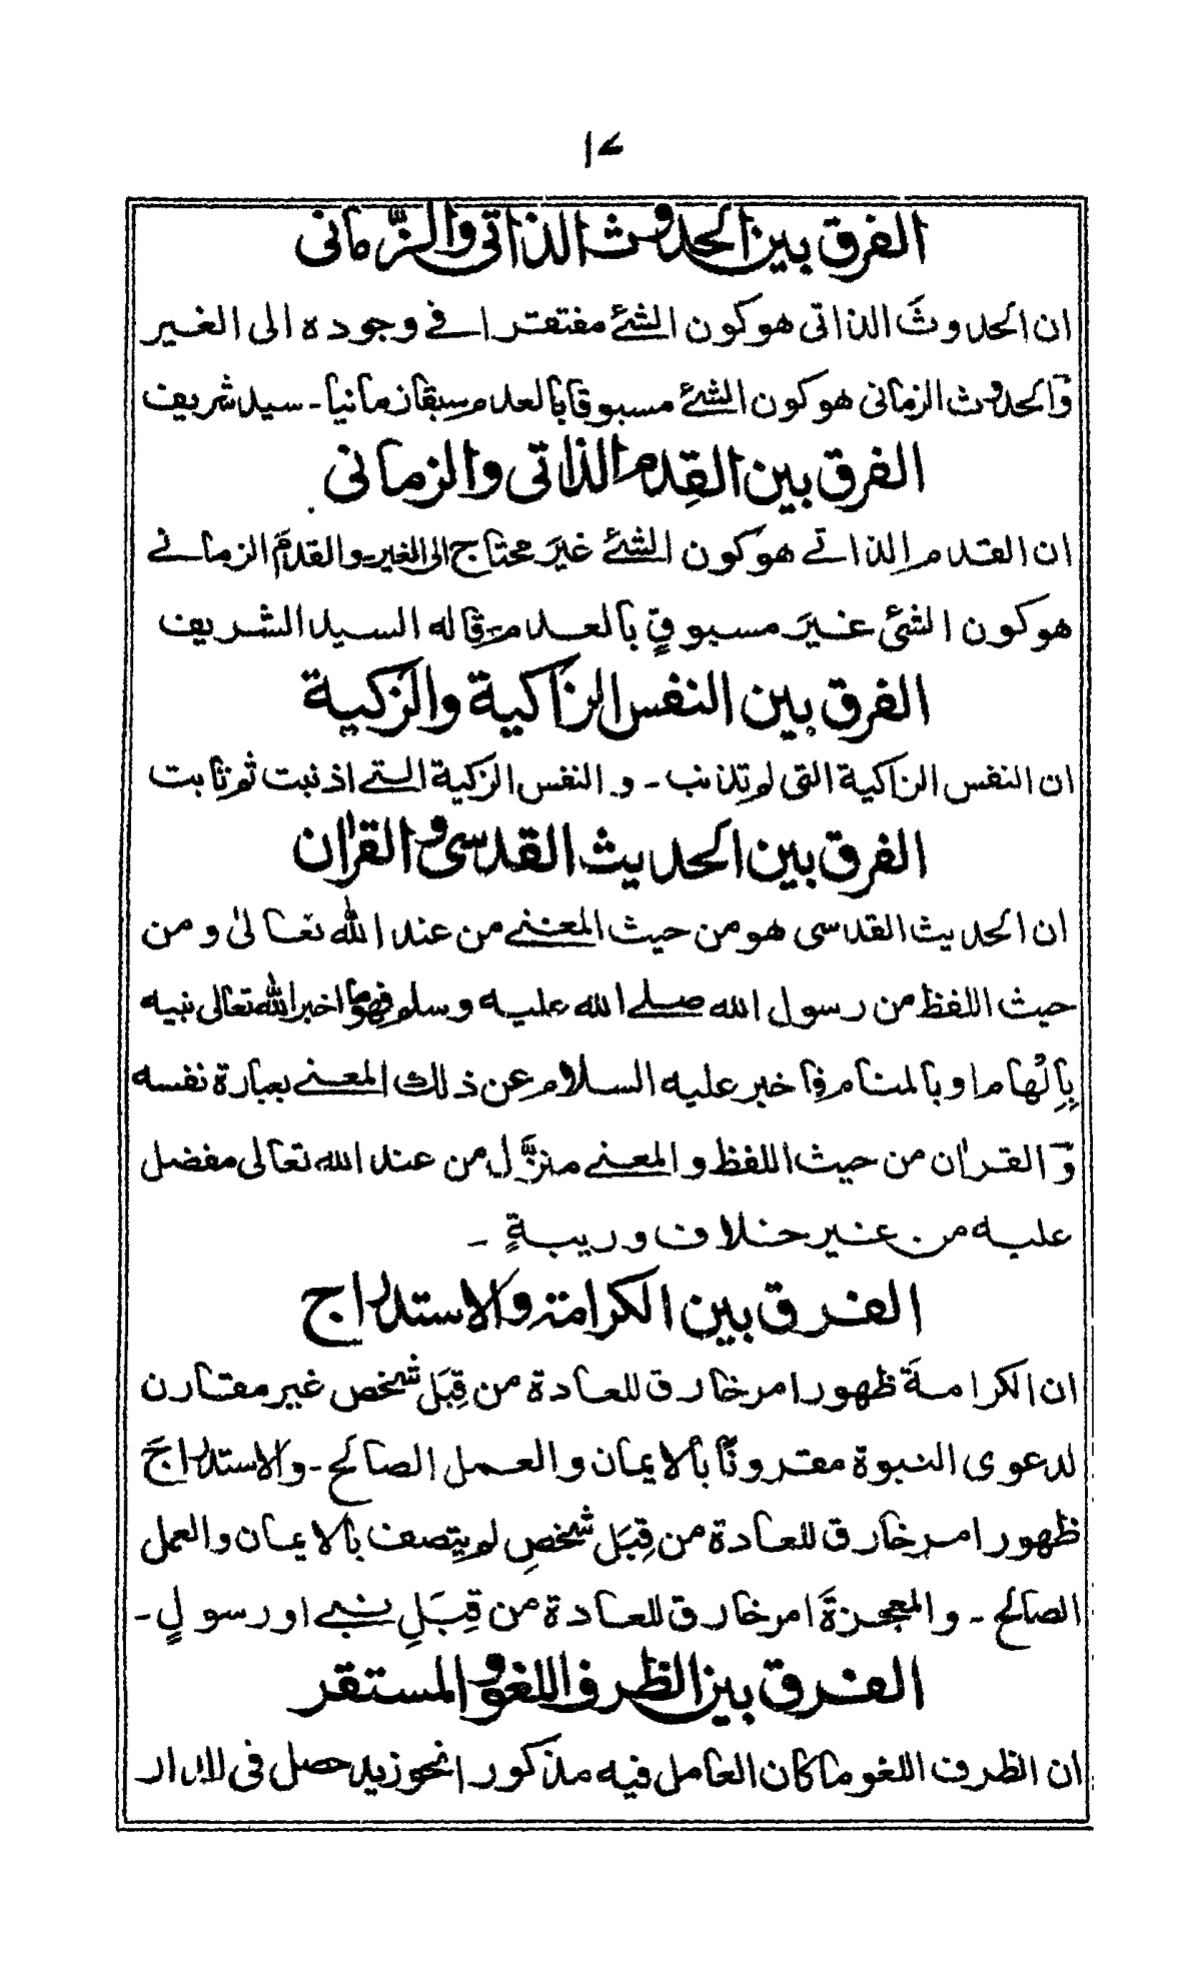 ۱۷
الفرق بين الحدوث الذاتى والزَّمانى
ان الحدوثَ الذاتى هو كون الشئ مفتقرا فے وجوده الى الغير
وَالحدوث الزمانى هو كون الشئ مسبوقا بالعدم سبقا زمانيا ـ سيد شريف
الفرق بين القِدم الذاتى والزمانى
ان القدم الذاتے هوَ كون الشئ غيرَ محتاج الى الغير والقدمَ الزمانے
هو كون الشئ غيرَ مسبوقٍ بالعدم ـ قاله السيد الشريف
الفرق بين النفس الزاكية والزَكية
ان النفس الزاكية التى لم تذنب ـ و النفس الزكية التے اذنبت ثم تابت
الفرق بين الحديث القدسى والقراٰن
ان الحديث القدسى هو من حيث المعنے من عند اللّٰه تعالىٰ و من
حيث اللفظ من رسول الله صلے الله عليه وسلم فهو ما اخبر اللّٰه تعالى نبيه
بِاِلْهام او بالمنام فاخبر عليه السلام عن ذلك المعنے بعبارة نفسه
وَالقراٰن من حيث اللفظ و المعنے منزَّل من عند الله تعالى مفضل
عليه من غير خلاف و ريبةٍ ـ
الفرق بين الكرامة والاستدراج
ان الكرامةَ ظهور امر خارق للعادة من قِبَل شخص غير مقارن
لدعوى النبوة مقرونًا بالايمان والعمل الصالح ـ والاستدراجَ
ظهور امر خارق للعادة من قِبَل شخصٍ لم يتصف بالايمان والعمل
الصالح ـ والمعجزةَ امر خارق للعادة من قِبَلِ نبے او رسولٍ ـ
الفرق بين الظرف اللغو والمستقر
ان الظرف اللغو ما كان العامل فيه مذكورا نحو زيد حصل فى الدار